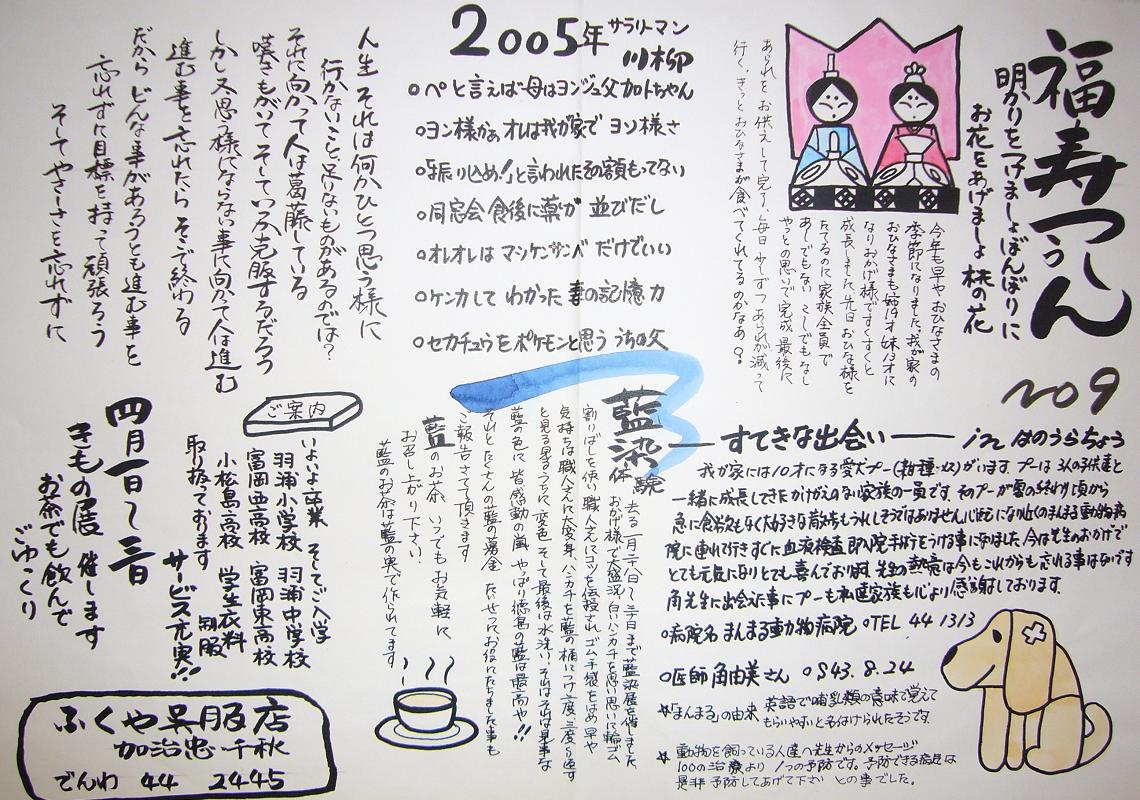 福寿つうしん
明かりをつけましょぼんぼりに
お花をあげましょ桃の花
no 9
今年も早やおひなさまの
季節になりました。我が家の
おひなさまも姉19才妹13才に
なりおかげ様ですくすくと
成長しました。先日おひな様を
たてるのに家族全員で
あしでもない こしでもなし
やっとの思いで完成 最後に
あられをお供えして完了、毎日少しずつあられが減って
行く、きっとおひなさまが食べてくれてるのかなあ。
2005年 サラリーマン
川柳
○ペと言えば母はヨンジュ父加トちゃん
○ヨン様かぁオレは我が家でヨソ様さ
○「振り込め!」と言われたその額もってない
○同窓会食後に薬が並びだし
○オレオレはマツケンサンバだけでいい
○ケンカしてわかった妻の記憶力
○セカチュウをポケモンと思ううちの父
人生それは何かひとつ思う様に
行かないことや足りないものがあるのでは?
それに向かって人は葛藤している
嘆きもがいてそしていつか克服するだろう
しかし又思う様にならない事に向かって人は進む
進む事を忘れたらそこで終わる
だからどんな事があろうとも進む事を
忘れずに目標を持って頑張ろう
そしてやさしさを忘れずに
すてきな出会い in はのうらちょう
我が家には10才になる愛犬プー(雑種・♀)がいます。プーは3人の子供達と
一緒に成長してきたかけがえのない家族の一員です。そのプーが夏の終わり頃から
急に食欲もなく大好きな散歩もうれしそうではありません。心配になり近くのまんまる動物病
院に連れて行きすぐに血液検査即入院手術をうける事になりました。今は先生のおかげで
とても元気になりとても喜んでおります。先生の熱意は今もこれからも忘れる事はないです
角先生に出会えた事にプーも私達家族も心より感謝しております。
○病院名 まんまる動物病院 ○TEL 44 1313
○医師 角由美さん ○S43.8.24
☆「まんまる」の由来 英語で哺乳類の意味で覚えて
もらいやすいと名付けられたそうです
☆動物を飼っている人達へ先生からのメッセージ
100の治療より1つの予防です。予防できる病気は
是非予防してあげて下さい との事でした。
藍染体験
去る一月二十八日〜三十日まで藍染展を催しました
おかげ様で大盛況 白いハンカチを思い思いに輪ゴム
割りばしを使い 職人さんにコツを伝授され、ゴム手袋をはめ早や
気持ちは職人さんに大変身、ハンカチを藍の桶につけ二度三度くり返す
と見る見るうちに変色 そして最後は水洗い、それはそれは見事な
藍の色に皆感動の嵐 やっぱり徳島の藍は最高や!!
それとたくさんの藍の募金 たせつにお役にたちました事も
ご報告させて頂きます
藍のお茶 いつでもお気軽に
お召し上がり下さい
藍のお茶は藍の実で作られてます
ご案内
いよいよ卒業 そしてご入学
羽浦小学校 羽浦中学校
富岡西高校 富岡東高校
小松島高校 学生衣料 制服
取り扱っております
サービス充実!!
四月一日〜三日
きもの展 催します
お茶でも飲んで
ごゆっくり
ふくや呉服店
加治忠・千秋
でんわ 44 2445